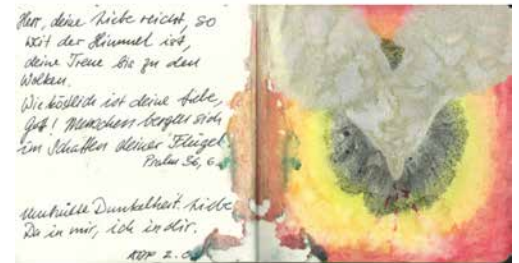 Herr, deine Liebe reicht, so
weit der Himmel ist,
deine Treue bis zu den
Wolken.
Wie köstlich ist deine Liebe,
Gott! Menschen bergen sich
im Schatten deiner Flügel
Psalm 36, 6
Umhüllte Dunkelheit. Liebe
Du in mir, ich in dir.